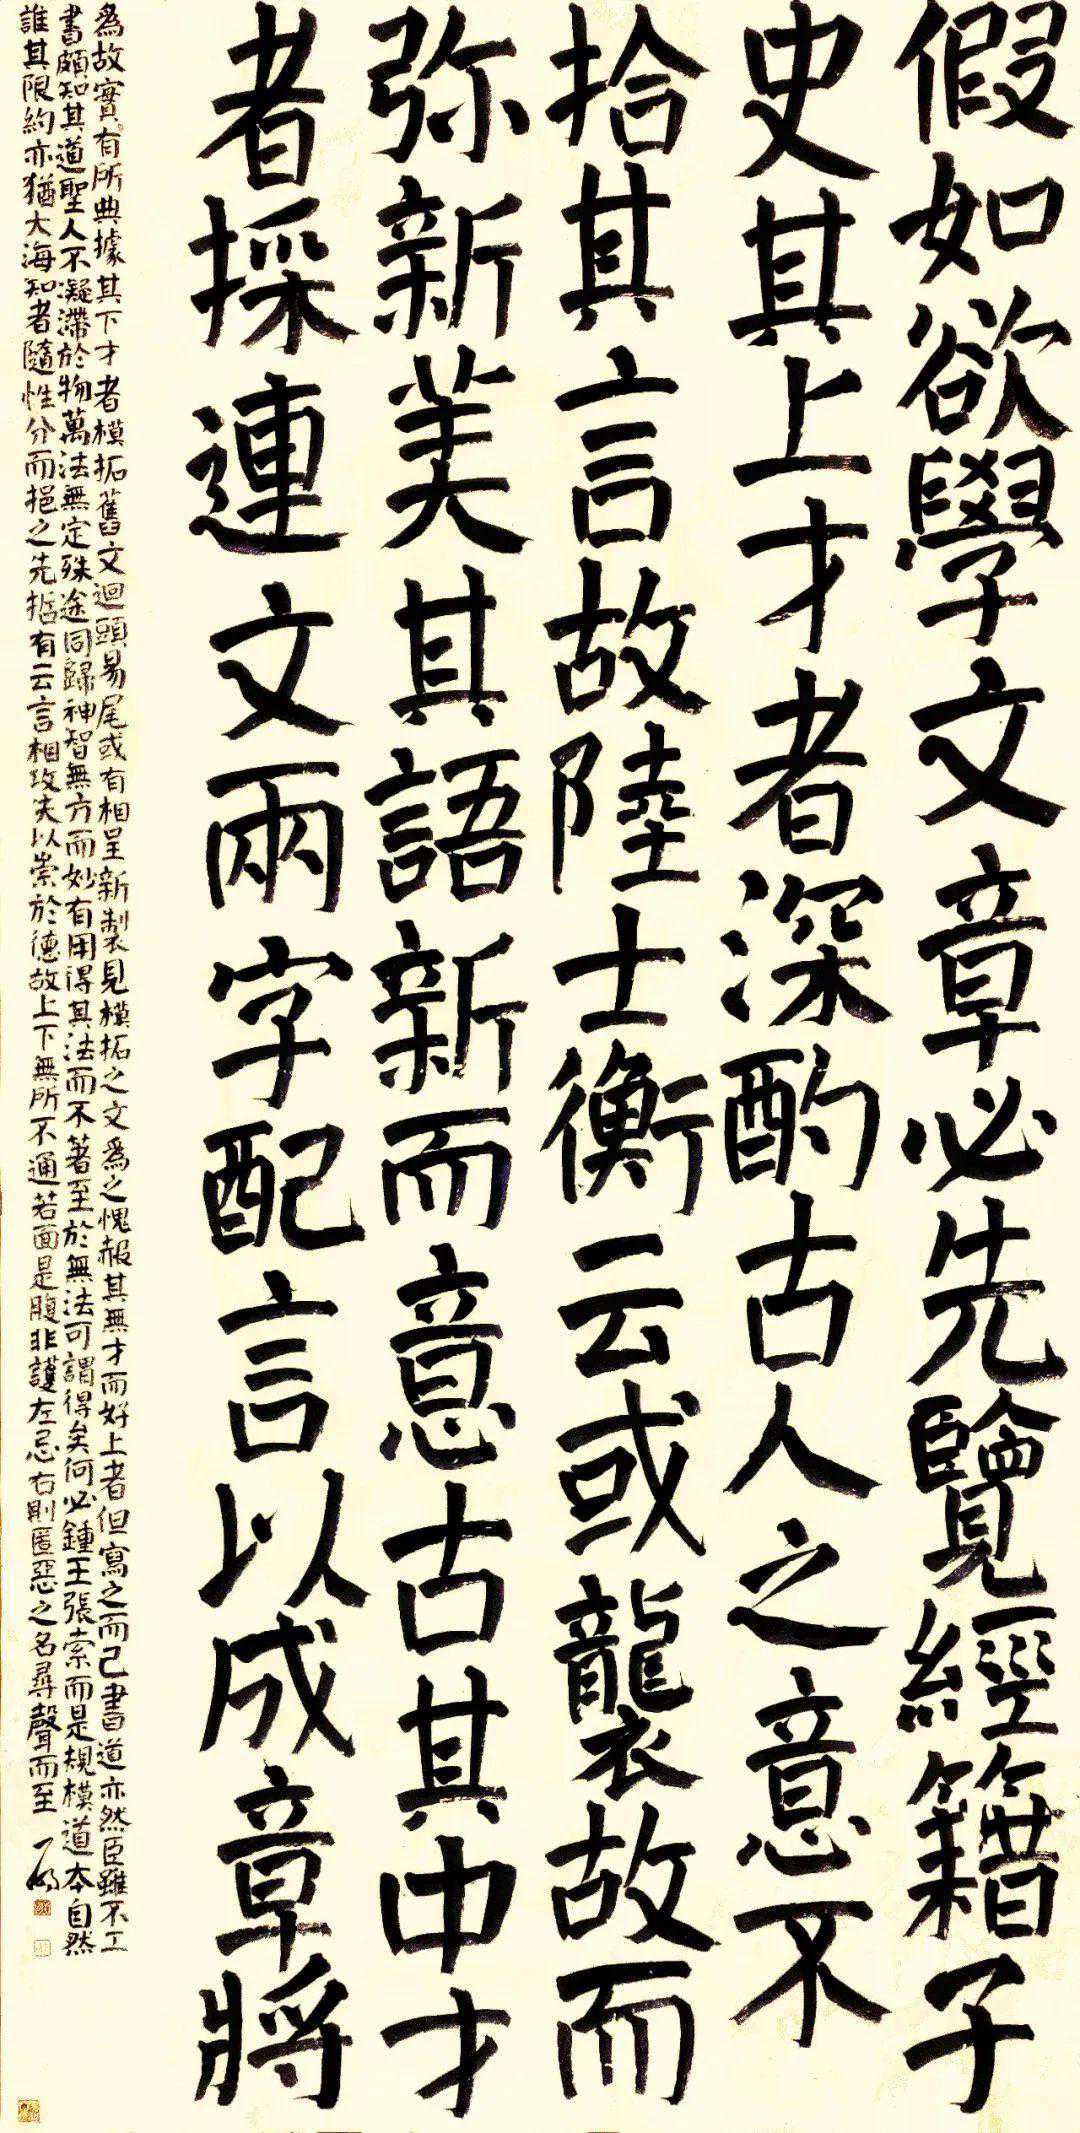 假如欲學文章必先覽經籍子
史其上才者深酌古人之意不
拾其言故陸士衡云或襲故而
弥新美其語新而意古其中才
者採連文兩字配言以成章將
為故實有所典據其下才者模拓舊文迴頭易尾或有相呈新製見模拓之文為之愧赧其無才而好上者但寫之而已書道亦然臣雖不工
書頗知其道聖人不凝滯於物萬法無定殊途同歸神智無方而妙有用得其法而不著至於無法可謂得矣何必鍾王張索而是規模道本自然
誰其限約亦猶大海知者隨性分而挹之先哲有云言相攻失以崇於德故上下無所不通若面是腹非護左忌右則匿惡之名尋聲而至